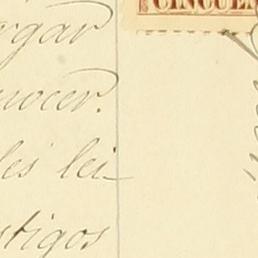 CINCUEN
rgar
nocer.
les lei-
stigos